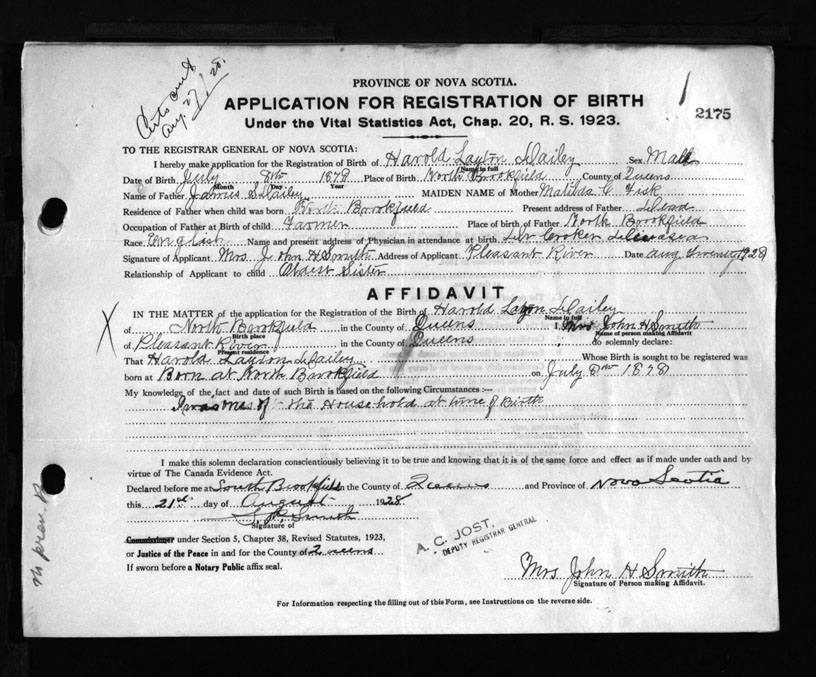 Certs sent
Aug 27/28.
PROVINCE OF NOVA SCOTIA.
APPLICATION FOR REGISTRATION OF BIRTH
Under the Vital Statistics Act, Chap. 20, R. S. 1923.
2175
TO THE REGISTRAR GENERAL OF NOVA SCOTIA:
I hereby make application for the Registration of Birth of Harold Layton Dailey Sex Male
Name in full
Date of Birth July 8th 1878 Place of Birth North Brookfield County of Queens
Month Day Year
Name of Father James S Dailey MAIDEN NAME of Mother Matilda C Fisk
Residence of Father when child was born North Brookfield Present address of Father Dead
Occupation of Father at Birth of child Farmer Place of birth of Father North Brookfield
Race English Name and present address of Physician in attendance at birth Dr Croker Deceased
Signature of Applicant Mrs John H Smith Address of Applicant Pleasant River Date Aug twenty 1928
Relationship of Applicant to child Oldest Sister
AFFIDAVIT
IN THE MATTER of the application for the Registration of the Birth of Harold Layton Dailey
Name in full
of North Brookfield in the County of Queens I, Mrs John H Smith
Birth place Name of person making Affidavit
of Pleasant River in the County of Queens do solemnly declare:
Present residence
That Harold Layton Dailey Whose Birth is sought to be registered was
born at Born at North Brookfield on July 8th 1878
My knowledge of the fact and date of such Birth is based on the following Circumstances :—
I was one of the Household at time of Birth
I make this solemn declaration conscientiously believing it to be true and knowing that it is of the same force and effect as if made under oath and by
virtue of The Canada Evidence Act.
Declared before me at South Brookfield in the County of Queens and Province of Nova Scotia
this 21st day of August 1928
Smith
Signature of
Commissioner under Section 5, Chapter 38, Revised Statutes, 1923,
or Justice of the Peace in and for the County of Queens
If sworn before a Notary Public affix seal.
A. C. JOST,
DEPUTY REGISTRAR GENERAL
Mrs John H Smith
Signature of Person making Affidavit.
For Information respecting the filling out of this Form, see Instructions on the reverse side.